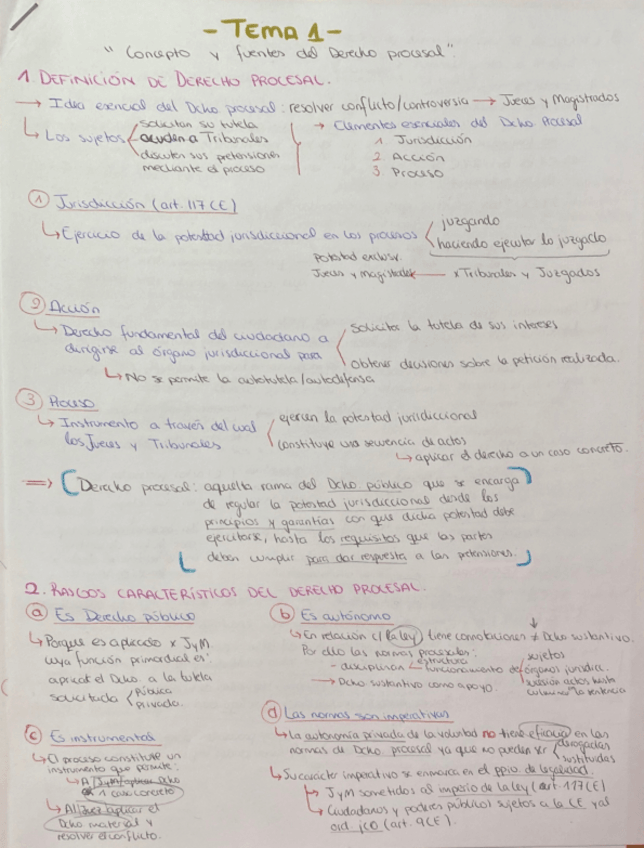 - TEMA 1 -
"Concepto y fuentes del Derecho procesal".
1 DEFINICIÓN DE DERECHO PROCESAL.
→ Idea esencial del Dcho procesal: resolver conflicto/controversia → Jueces y Magistrados
↳ Los sujetos
solicitan su tutela
acuden a Tribunales
discuten sus pretensiones
mediante el proceso
→ Elementos esenciales del Dcho Procesal
1 Jurisdicción
2 Acción
3 Proceso
① Jurisdicción (art. 117 CE)
↳ Ejercicio de la potestad jurisdiccional en los procesos
juzgando
haciendo ejecutar lo juzgado
Potestad exclusiv.
Jueces y Magistrados x Tribunales y Juzgados
② Acción
↳ Derecho fundamental del ciudadano a
dirigirse al órgano jurisdiccional para
solicitar la tutela de sus intereses
obtener decisiones sobre la petición realizada.
↳ No se permite la autotutela/autodefensa
③ Proceso
↳ Instrumento a través del cual
los Jueces y Tribunales
ejercen la potestad jurisdiccional
constituye una secuencia de actos
↳ aplicar el derecho a un caso concreto.
⇒ [Derecho procesal: aquella rama del Dcho público que se encarga
de regular la potestad jurisdiccional desde los
principios y garantías con que dicha potestad debe
ejercitarse, hasta los requisitos que las partes
deben cumplir para dar respuesta a las pretensiones.]
2. RASGOS CARACTERÍSTICOS DEL DERECHO PROCESAL.
ⓐ Es Derecho público
↳ Porque es aplicado x JyM
cuya función primordial es:
aplicar el Dcho. a la tutela
solicitada
Pública
privada.
ⓑ Es autónomo
↳ En relación c/ (la ley) tiene connotaciones ≠ Dcho sustantivo.
Por ello las normas procesales:
- disciplinan
estructura
funcionamiento de órganos jurisdicc.
sujetos
sucesión actos hasta
culminar la sentencia
→ Dcho sustantivo como apoyo.
ⓒ Es instrumental
↳ El proceso constituye un
instrumento que permite:
↳ A JyM aplicar Dcho
1 caso concreto
↳ Al juez aplicar el
Dcho material y
resolver el conflicto.
ⓓ Las normas son imperativas
↳ La autonomía privada de la voluntad no tiene eficacia en las
normas de Dcho. procesal ya que no pueden ser
derogadas
sustituidas
↳ Su carácter imperativo se enmarca en el ppio. de legalidad.
↳ JyM sometidos al imperio de la ley (art. 117 CE)
↳ Ciudadanos y poderes públicos sujetos a la CE y al
ord. jco (art. 9 CE).